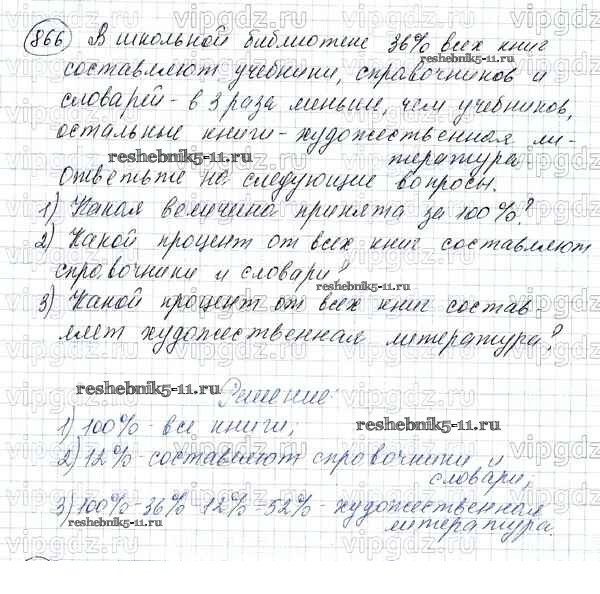 866 В школьной библиотеке 36% всех книг
reshebnik5-11.ru
составляют учебники, справочников и
словарей - в 3 раза меньше, чем учебников,
остальные книги - художественная ли-
reshebnik5-11.ru тература.
Ответьте на следующие вопросы.
1) Какая величина принята за 100%?
2) Какой процент от всех книг составляют
справочники и словари?
reshebnik5-11.ru
3) Какой процент от всех книг состав-
ляет художественная литература?
reshebnik5-11.ru Решение:
1) 100% - все книги; reshebnik5-11.ru
2) 12% - составляют справочники и
словари;
3) 100% - 36% - 12% = 52% - художественная
reshebnik5-11.ru литература.